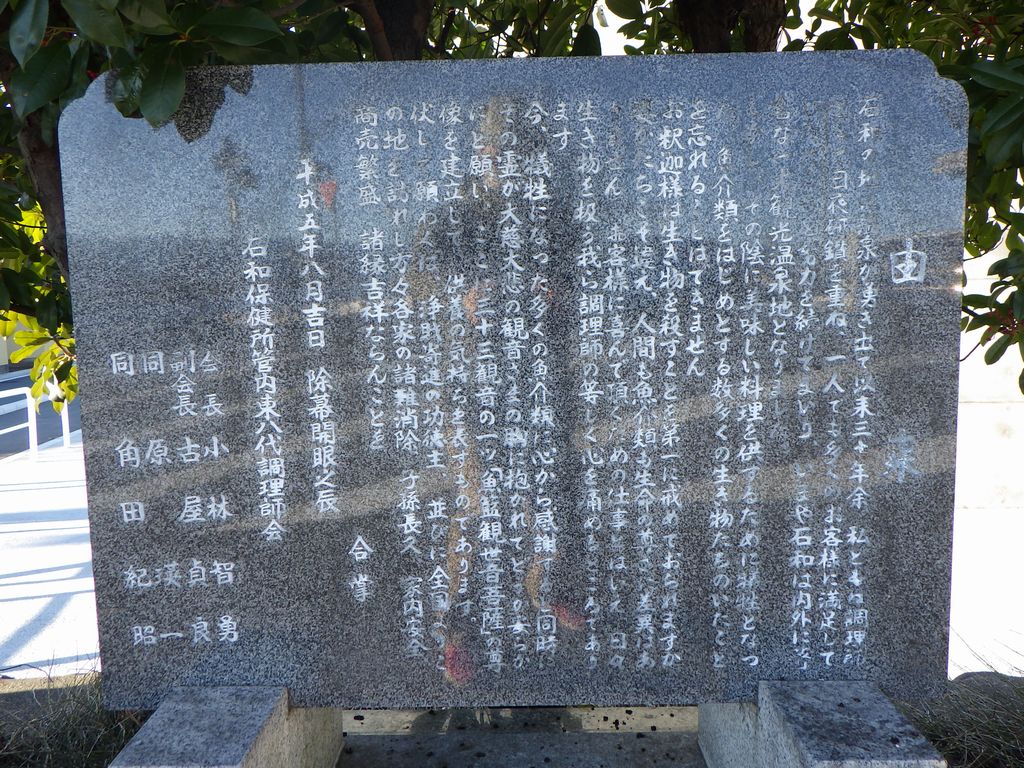 由来
石和の地に温泉が湧き出て以来三十年余 私ども調理師
日夜研鑽を重ね 一人でも多くのお客様に満足して
努力を続けてまいり いまや石和は内外に
な 観光温泉地となりました
その陰に美味しい料理を供するために犠牲となっ
た 魚介類をはじめとする数多くの生き物たちのいたこと
を忘れることはできません
お釈迦様は生き物を殺すことを第一に戒めておられますが
姿かたちこそ違え、人間も魚介類も生命の尊さに差異はあ
りません お客様に喜んで頂くための仕事とはいえ 日々
生き物を扱う我ら調理師の等しく心を痛めるところであり
ます
今、犠牲になった多くの魚介類に心から感謝すると同時に
その霊が大慈大悲の観音さまの胸に抱かれて
ほと願い、ここに三十三観音の一ツ「魚籃観世音菩薩」の尊
像を建立して、供養の気持ちを表すものであります。
伏して願わくは 浄財寄進の功徳主 並びに全国よりこ
の地を訪れし方々各家の諸難消除 子孫長久 家内安全
商売繁盛 諸縁吉祥ならんことを
合掌
平成五年八月吉日 除幕開眼之辰
石和保健所管内東八代調理師会
会長 小林 智勇
副会長 古屋 貞良
同 原 瑛一
同 角田 紀昭